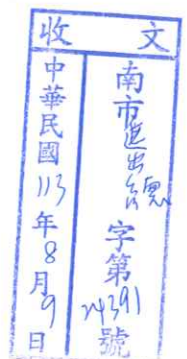 收文
南市進出字第24391號
中華民國113年8月9日